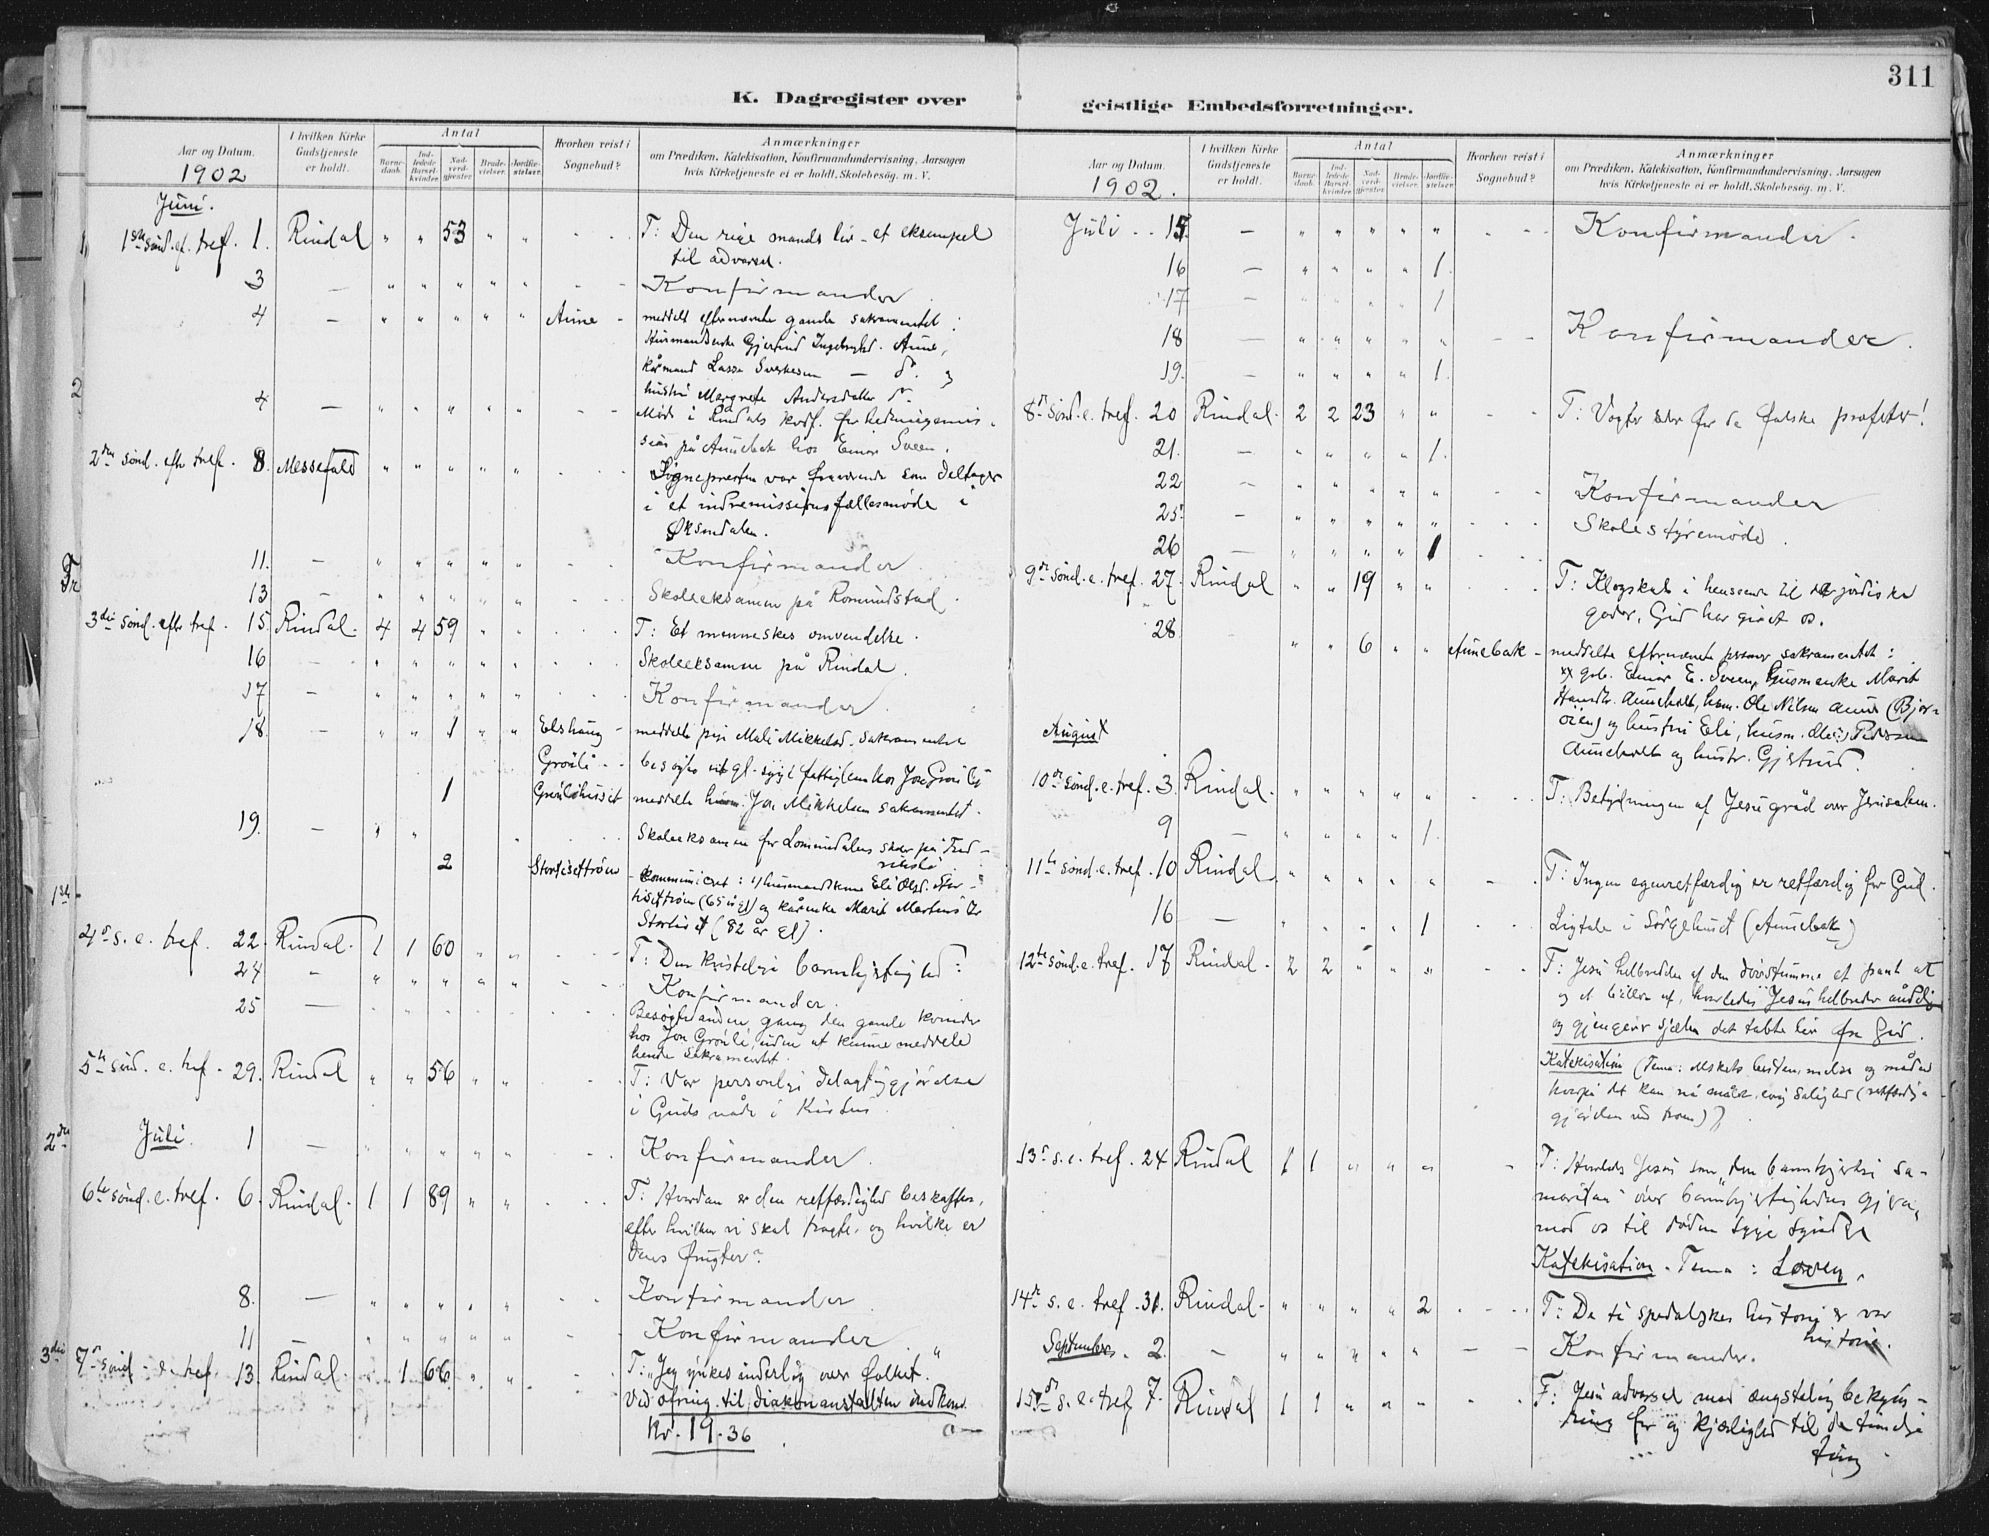 311
K. Dagregister over
geistlige Embedsforretninger.
Aar og Datum.
1902
I hvilken Kirke Gudstjeneste er holdt.
Antal
Barnedaab. Indledede Barselkvinder. Nadverdgjester. Brudevielser. Jordfæstelser.
Hvorhen reist i Sognebud?
Anmærkninger
om Prædiken, Katekisation, Konfirmandundervisning, Aarsagen
hvis Kirketjeneste ei er holdt, Skolebesøg. m. V.
Juni.
1ste sönd. ef. tref. 1. Rindal " " 53 " " T: Den rige mands liv - et eksempel
til advarsel.
3 — " " " " " Konfirmander
4 — " " " " " Aune - meddelt efternævnte gamle sakramentet:
Ingebrigtsd. Aune,
kårmand Lasse Sverkesen — do. og
hustru Margrete Andersdatter do.
4 — " " " " " Møde i Rindals krdf. for hedningemis-
sion på Aunebak hos Einar Sveen.
2den sönd. efter tref. 8. Messefald " " " " " Sognepresten var fraværende som deltager
i et indremissionsfællesmøde i
Øksendalen.
11. — " " " " " Konfirmander
13 — " " " " " Skoleeksamen på Romundstad.
3die sönd. efter tref. 15. Rindal 4 4 59 " " T: Et menneskes omvendelse.
16 — " " " " " Skoleeksamen på Rindal.
17 — " " " " " Konfirmander.
18. — " " 1 " " Elshaug - meddelte pige Mali Mikkelsd. sakramentet
Gröli - besøgte
1 Gröli husm. Jon Mikkelsen sakramentet.
19. — " " Skoleeksamen for Lomundalens skoler på Fred-
rikslí
2 Storlisettrøen - kommuniceret: 1) husmandskone Eli Olsd. Stor-
lisettrøen (65 år gl) og kårenke Marit Martens Dr
Storliset (82 år gl).
4de s. e. tref. 22. Rindal 1 1 60 " " T: Den kristelige barmhjertighed:
24 — " " " " " Konfirmander.
25 — Besøgte anden gang den gamle kvinde
hos Jon Gröli, uden at kunne meddele
hende sakramentet.
5te sönd. e. tref. 29. Rindal " " 56 " " T: Vor personlige delagtiggjørelse
i Guds nåde i Kristus.
Juli. 1 — " " " " " Konfirmander.
6te sönd. e. tref. 6. Rindal 1 1 89 " " T: Hvordan er den retfærdighed beskaffen,
efter hvilken vi skal tragte, og hvilke er
dens frugter?
8. — " " " " " Konfirmander
11 — " " " " " Konfirmander
7de sönd. e. tref. 13. Rindal " 1 66 " " T: „Jeg ynkes inderlig over folket."
Ved ofring til diakonanstalten indkom
Kr. 19.36
Aar og Datum.
1902.
I hvilken Kirke Gudstjeneste er holdt.
Antal
Barnedaab. Indledede Barselkvinder. Nadverdgjester. Brudevielser. Jordfæstelser.
Hvorhen reist i Sognebud?
Anmærkninger
om Prædiken, Katekisation, Konfirmandundervisning, Aarsagen
hvis Kirketjeneste ei er holdt, Skolebesøg. m. V.
Juli 15 — " " " " " Konfirmander.
16 — " " " " 1.
17 — " " " " 1
18 — " " " " " Konfirmander.
19. — " " " " 1.
8de sönd. e. tref. 20 Rindal 2 2 23 " " T: Vogter eder for de falske profeter!
21. — " " " " 1.
22 — " " " " " Konfirmander
25. — " " " " " Skolestyremøde.
26 — " " " " 1
9de sönd. e. tref. 27. Rindal " " 19 " " T: Klogskab i henseende til de jordiske
goder, Gud har givet os.
28. — " " 6 " " Aunebak - meddelte efternævnte personer sakramentet:
Einar E. Sveen, husmenke Marit
Aunebakk, husm. Ole Nilsen Aune (Bjør-
øien) og hustru Eli, husm. Pedersen
Aunebakk og hustr. Gjertrud.
August
10de sönd. e. tref. 3. Rindal " " " " " T: Betydningen af Jesu gråd over Jerusalem.
9 — " " " " 1.
11te sönd. e. tref. 10 Rindal " " " " " T: Ingen egenretfærdig er retfærdig for Gud.
16 — " " " " 1 Ligtale i Sørgehuset (Aunebak)
12te sönd. e. tref. 17 Rindal 2 2 " " " T: Jesu helbredelse af den døvstumme et pant at
og et billede af, hvorledes Jesus helbreder åndelig
og gjengiver sjælen det tabte liv fra Gud.
Katekisation (Tema: Mskets bestemmelse og måden
hvorpå det kan nå målet, evig salighed (retfærdig-
gjørelsen ved troen)).
13de s. e. tref. 24 Rindal 1 1 " " " T: Hvorledes Jesus som „den barmhjertige sa-
maritan" øver barmhjertighedens gjern.
mod os til døden syge syndere
Katekisation. Tema: Loven.
14de s. e. tref. 31. Rindal " " " " 2 T: De ti spedalskes historie er vor
historie.
September. 2. — " " " " " Konfirmander.
15de s. e. tref. 7. Rindal 1 1 " " " T: Jesu advarsel mod ængstelig bekym-
ring for og kjærlighed til de timelige
ting
1
2
Tr
1ste
2den
3die